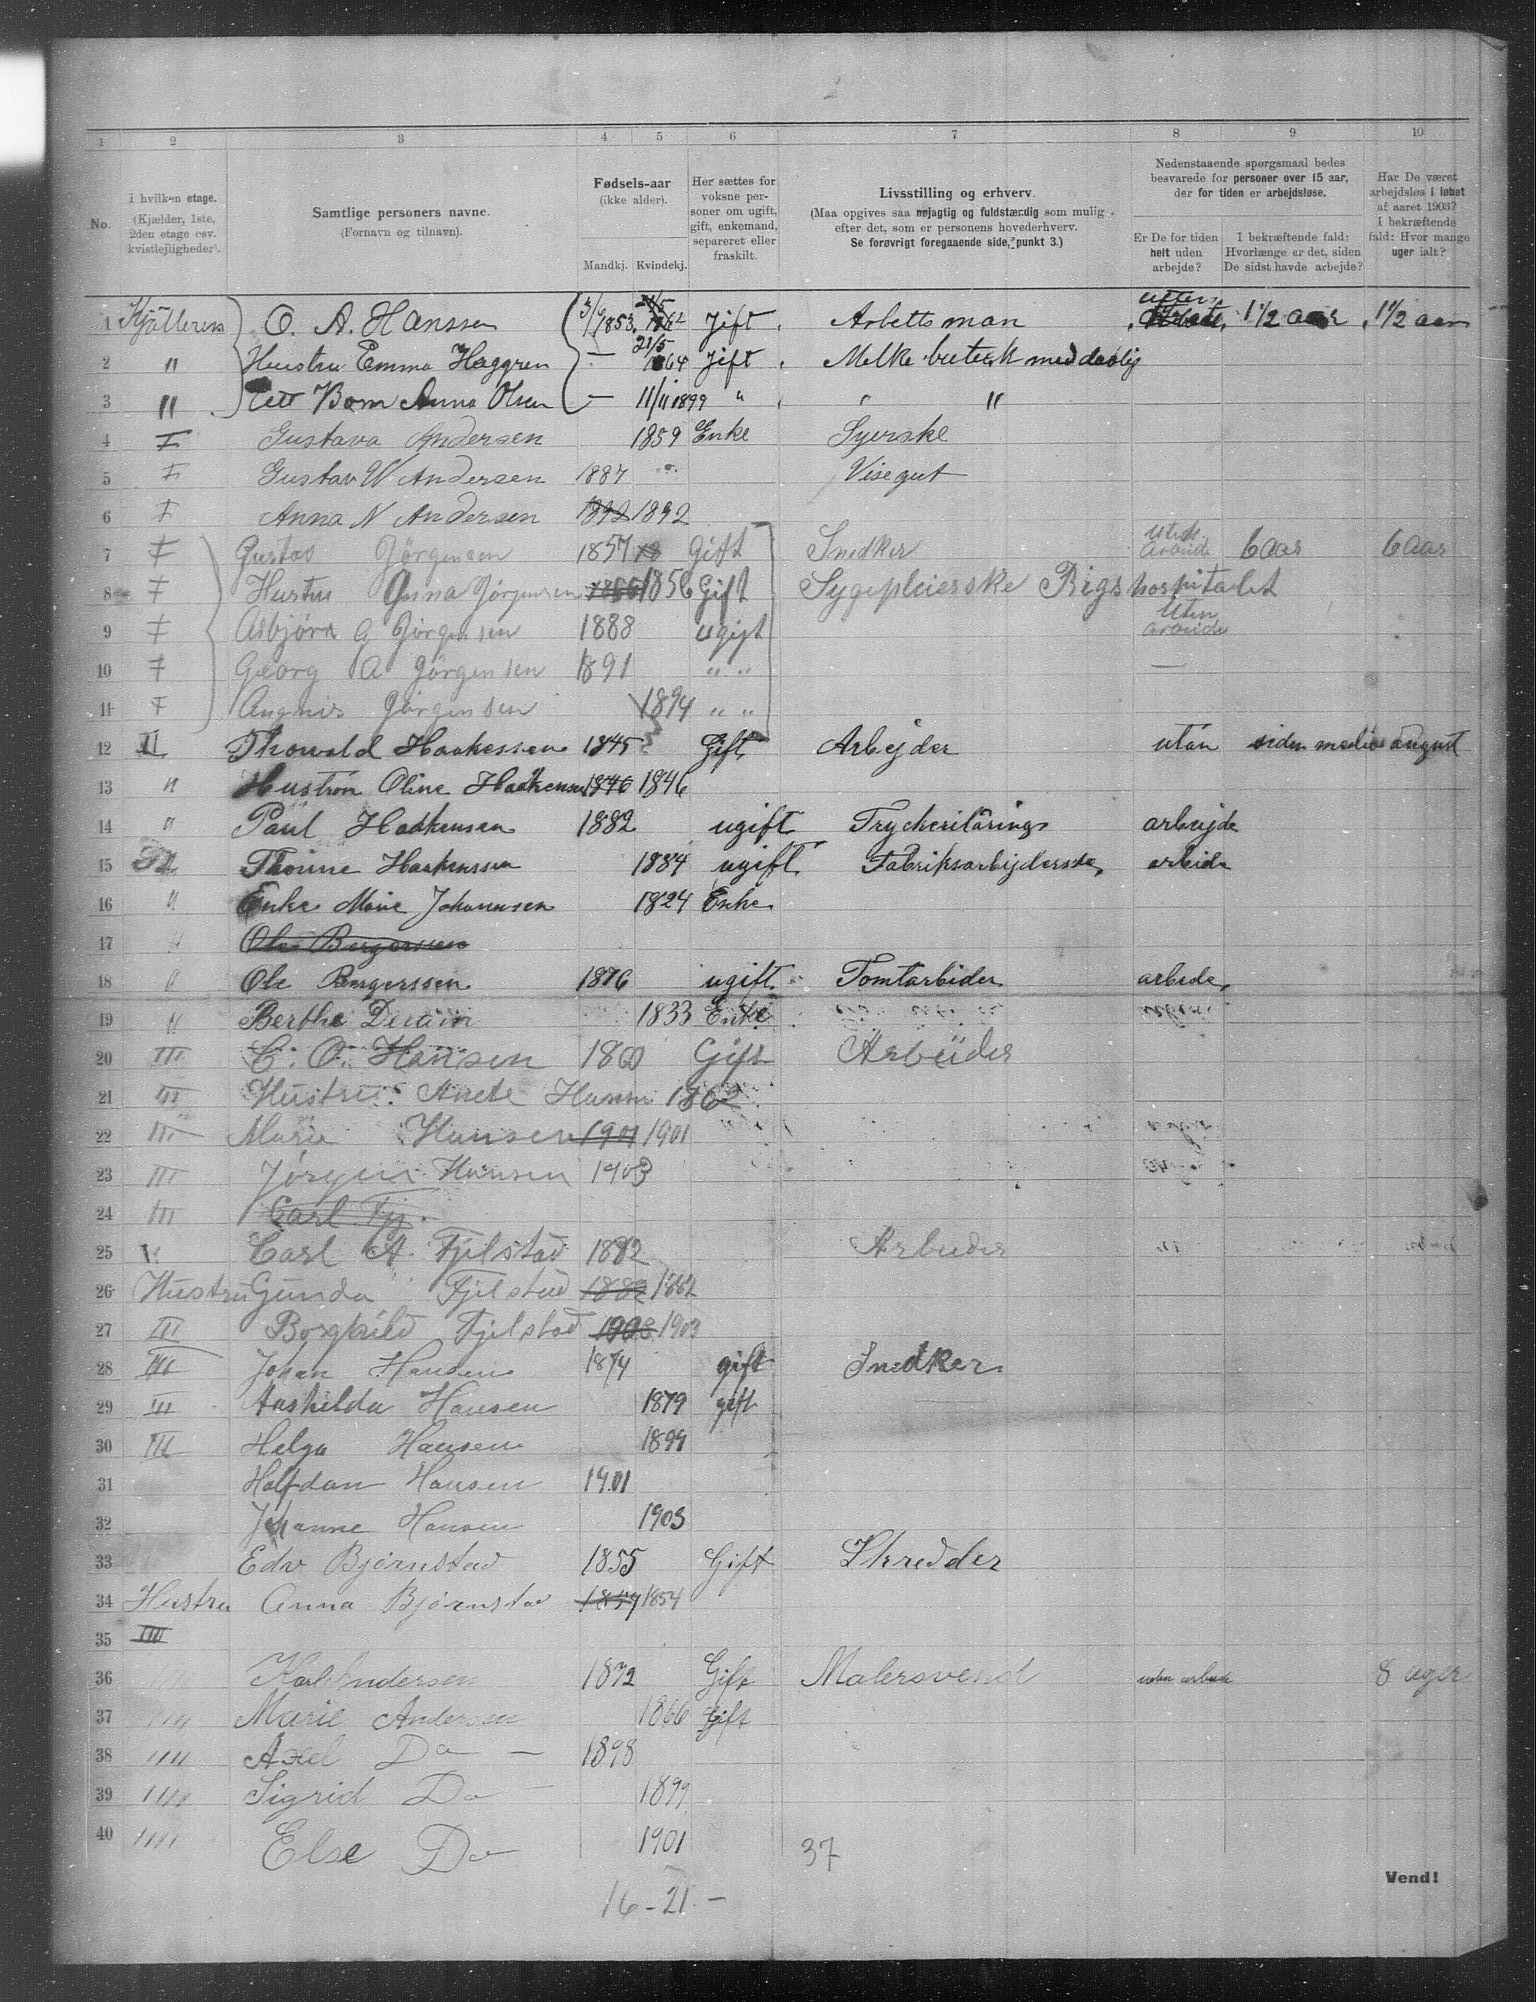 1 2 3 4 5 6 7 8 9 10
No.
I hvilken etage.
(Kjælder, 1ste,
2den etage osv.
kvistlejligheder).
Samtlige personers navne.
(Fornavn og tilnavn).
Fødsels-aar
(ikke alder).
Mandkj. Kvindekj.
Her sættes for
voksne per-
soner om ugift,
gift, enkemand,
separeret eller
fraskilt.
Livsstilling og erhverv.
(Maa opgives saa nøjagtig og fuldstændig som mulig
efter det, som er personens hovederhverv.
Se forøvrigt foregaaende side, punkt 3.)
Nedenstaaende spørgsmaal bedes
besvarede for personer over 15 aar,
der for tiden er arbejdsløse.
Er De for tiden
helt uden
arbejde?
I bekræftende fald:
Hvorlænge er det, siden
De sidst havde arbejde?
Har De været
arbejdsløs i løbet
af aaret 1903?
I bekræftende
fald: Hvor mange
uger ialt?
1 O. A. Hanssen 3/6 1853 Jift Arbettsman 1 1/2 aar 1 1/2 aar
2 " Hustru Emma Haggren — 21/5 1864 Jift Melke buteek meddeolig
3 " ett Barn Anna Olsen — 11/11 1899 " " "
4 I Gustava Andersen 1859 Enke Syerske
5 I Gustav W Andersen 1887 Visegut
6 I Anna N Andersen 1892 1892
7 I Gustav Jørgensen 1857 Gift Snedker 6 aar 6 aar
8 I Hustru Anna Jørgensen 1856 1856 Gift Sygepleierske Rigshospitalet
9 I Asbjørn G Jørgensen 1888 ugift Uten arbeide
10 I Georg A Jørgensen 1891 " " —
11 I Jørgensen 1894 " "
12 II Thorvald Haakenssen 1845 Gift Arbejder utan siden august
13 " Hustrøn Oline Haakensen 1846 1846
14 " Paul Haakensen 1882 ugift Tryckerilärings arbejde
15 Haakenssen 1884 ugift Fabriksarbijderske arbide
16 " Enke Johannesen 1824 Enke
17 " Ole Bergerssen
18 " Ole Bergerssen 1876 ugift Tomtarbider arbede
19 " Berthe 1833 Enke
20 III C. O. Hansen 1860 Gift Arbüder
21 III Hustru Anete Hansen 1862
22 III Marie Hansen 1901 1901
23 III Jørgen Hansen 1903
24 III Carl Fj.
25 Carl A. Fjelstad 1882 Arbeider
26 Hustru Gunda Fjelstad 1882 1882
27 III Borghild Fjelstad 1903 1903
28 III Johan Hansen 1874 gift Snedker
29 III Aashilda Hansen 1879 gift
30 III Helga Hansen 1899
31 Halfdan Hansen 1901
32 Johanne Hansen 1903
33 Edv Bjørnstad 1855 Gift Skredder
34 Hustru Anna Bjørnstad 1854 1854
35 III
36 IIII Karl Andersen 1872 Gift Malersvend uden arbeide 8 uger
37 IIII Marie Andersen 1866 Gift
38 IIII Axel Do — 1898
39 IIII Sigrid Do — 1899
40 IIII Else Do 1901
37
Vend!
16 - 21 -